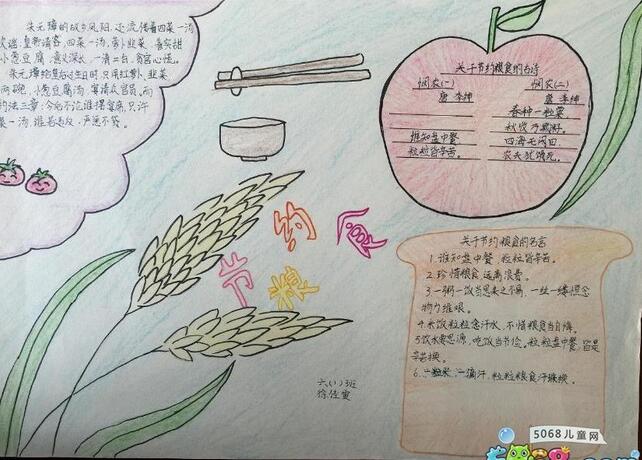 朱元璋的故乡凤阳,还流传着四菜一汤
歌谣:皇帝请客,四菜一汤,萝卜韭菜,着实甜
小葱豆腐,意义深长,一清二白,贪官心慌。
朱元璋给皇后过生日时,只用红萝卜、韭菜
两碗,小葱豆腐汤,宴请众官员,而
约法三章:今后不论谁摆宴席,只许
菜一汤,谁若违反,严惩不贷。
关于节约粮食的名诗
悯农(一)
唐 李绅
谁知盘中餐
粒粒皆辛苦。
悯农(二)
唐 李绅
春种一粒粟
秋收万颗籽。
四海无闲田
农夫犹饿死。
节约粮食
关于节约粮食的名言
1.谁知盘中餐 粒粒皆辛苦。
2.珍惜粮食 远离浪费。
3.一粥一饭当思来之不易,一丝一缕恒念
物力维艰。
4.米饭粒粒念汗水,不惜粮食当自悔。
5饮水要思源,吃饭当节俭。粒粒盘中餐,皆是
辛苦换。
6.一粒米,一滴汗,粒粒粮食汗珠换。
六(1)班
徐佳寅
5068儿童网